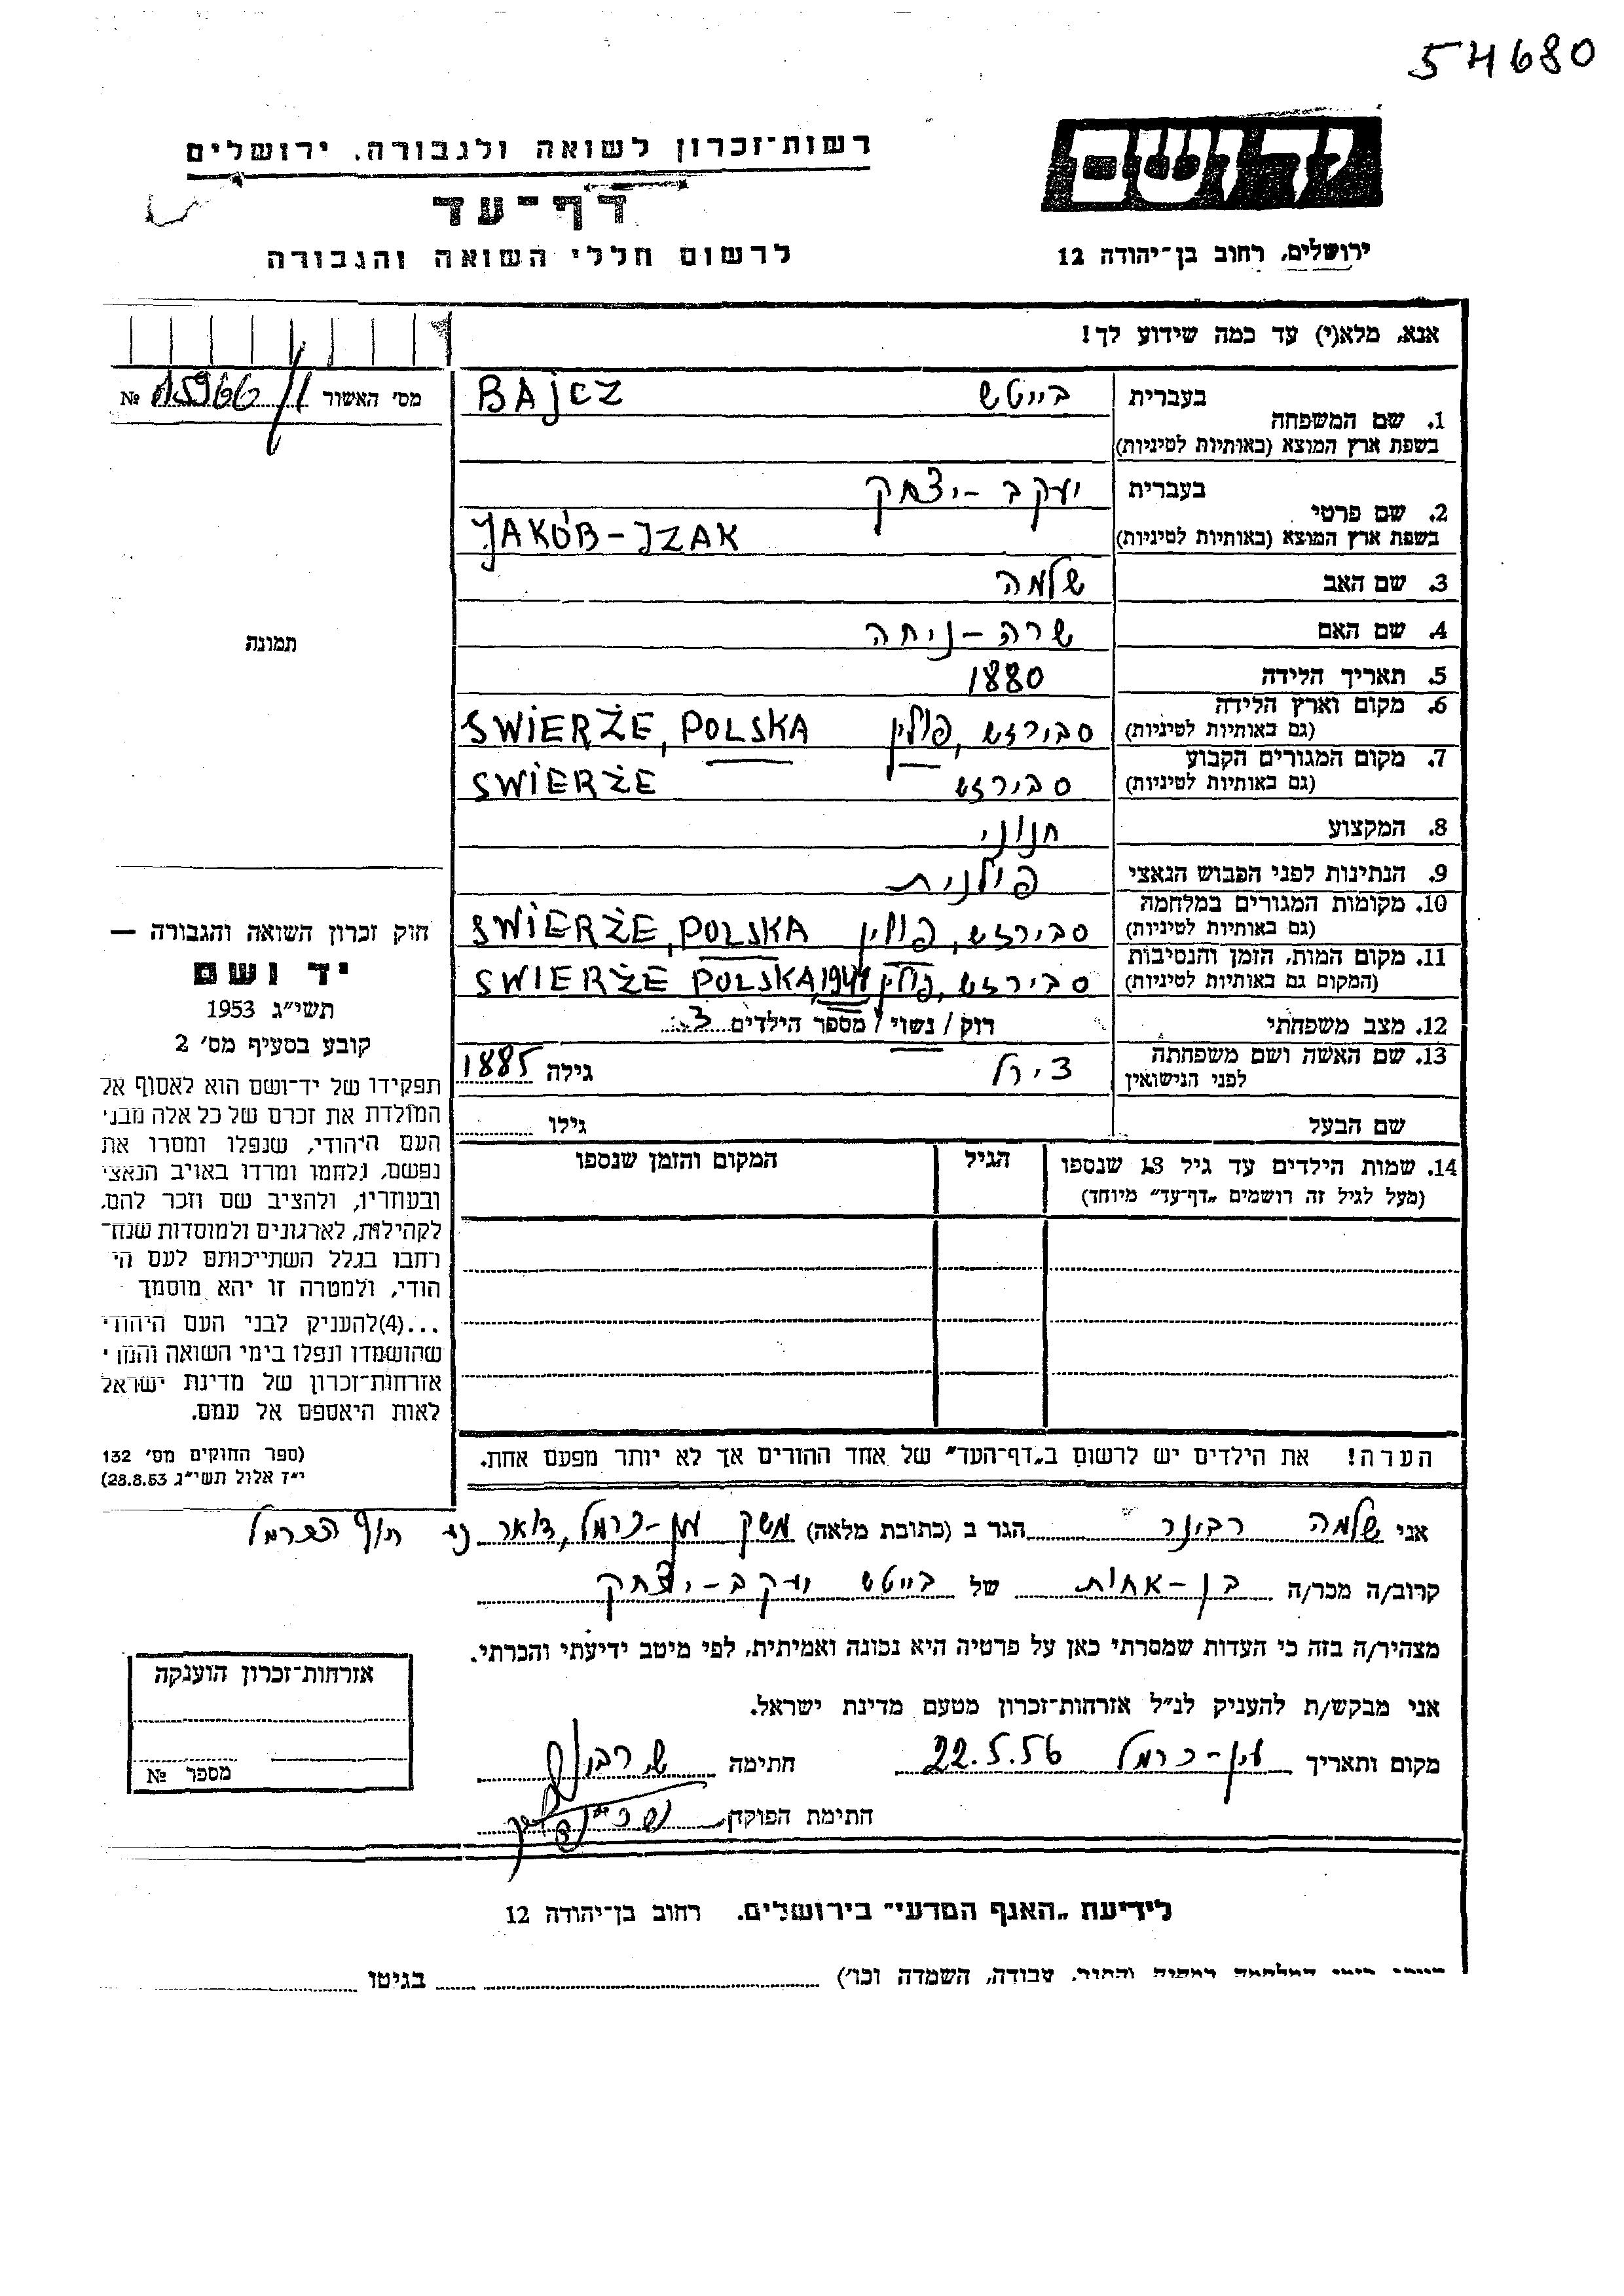 54680
רשות־זכרון לשואה ולגבורה, ירושלים
יד ושם
דף־עד
לרשום חללי השואה והגבורה
ירושלים, רחוב בן־יהודה 12
אנא, מלא(י) עד כמה שידוע לך!
מס' האשור 15966/1 №
בעברית בייטש BAJCZ
1. שם המשפחה
בשפת ארץ המוצא (באותיות לטיניות)
בעברית יעקב-יצחק
2. שם פרטי
בשפת ארץ המוצא (באותיות לטיניות) JAKÓB-IZAK
3. שם האב שלמה
4. שם האם שרה-ניחה
תמונה
5. תאריך הלידה 1880
6. מקום וארץ הלידה
(גם באותיות לטיניות) סבירזש, פולין SWIERŻE, POLSKA
7. מקום המגורים הקבוע
(גם באותיות לטיניות) סבירזש SWIERŻE
8. המקצוע חנוני
9. הנתינות לפני הכבוש הנאצי פולנית
10. מקומות המגורים במלחמה
(גם באותיות לטיניות) סבירזש, פולין SWIERŻE, POLSKA
11. מקום המות, הזמן והנסיבות
(המקום גם באותיות לטיניות) סבירזש, פולין SWIERŻE POLSKA, 1941
12. מצב משפחתי רוק / נשוי / מספר הילדים 3
13. שם האשה ושם משפחתה
לפני הנישואין צירל גילה 1885
שם הבעל גילו
14. שמות הילדים עד גיל 18 שנספו הגיל המקום והזמן שנספו
(מעל לגיל זה רושמים „דף־עד" מיוחד)
הערה! את הילדים יש לרשום ב„דף־העד" של אחד ההורים אך לא יותר מפעם אחת.
חוק זכרון השואה והגבורה —
יד ושם
תשי"ג 1953
קובע בסעיף מס' 2
תפקידו של יד־ושם הוא לאסוף אל
המולדת את זכרם של כל אלה מבני
העם היהודי, שנפלו ומסרו את
נפשם, נלחמו ומרדו באויב הנאצי
ובעוזריו, ולהציב שם וזכר להם,
לקהילות, לארגונים ולמוסדות שנח־
רחבו בגלל השתייכותם לעם הי
הודי, ולמטרה זו יהא מוסמך
...(4)להעניק לבני העם היהודי
שהושמדו ונפלו בימי השואה והמרי
אזרחות־זכרון של מדינת ישראל
לאות היאספם אל עמם.
(ספר החוקים מס' 132
י"ז אלול תשי"ג 28.8.53)
אני שלמה רבינר הגר ב (כתובת מלאה) משק עין-כרמל, דואר נע חוף הכרמל
קרוב/ה מכר/ה בן-אחות של בייטש יעקב-יצחק
מצהיר/ה בזה כי העדות שמסרתי כאן על פרטיה היא נכונה ואמיתית, לפי מיטב ידיעתי והכרתי.
אני מבקש/ת להעניק לנ"ל אזרחות־זכרון מטעם מדינת ישראל.
מקום ותאריך עין-כרמל 22.5.56 חתימה
חתימת הפוקד
אזרחות־זכרון הוענקה
מספר №
לידיעת „האגף המדעי" בירושלים, רחוב בן־יהודה 12
עבודה, השמדה וכו') בגיטו